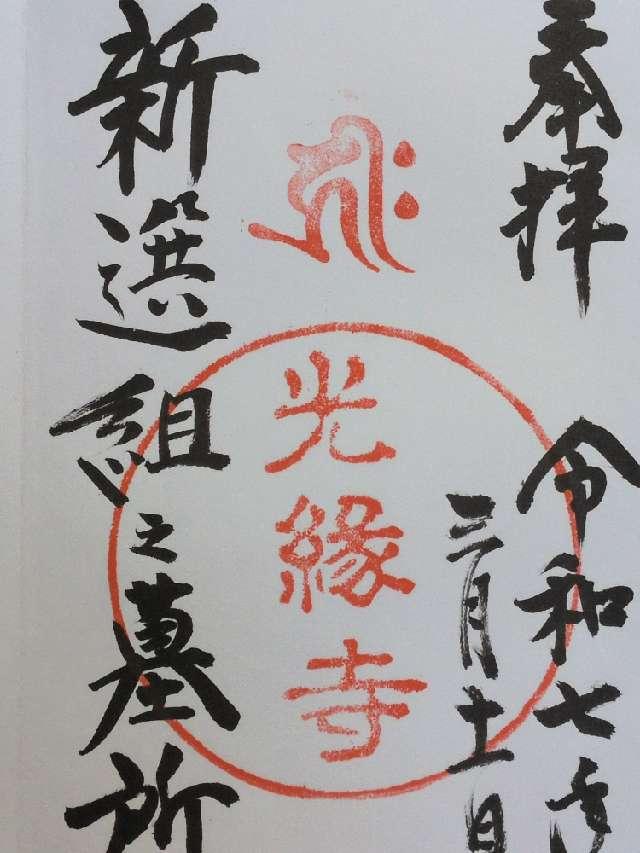 奉拝
令和七年
三月十一日
光縁寺
新選組之墓所